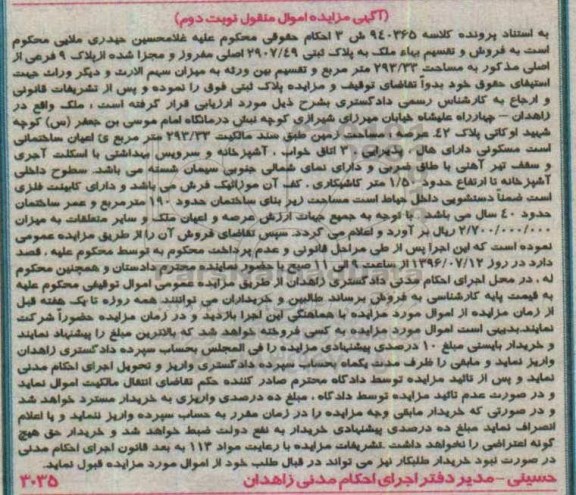 (آگهی مزایده اموال منقول نوبت دوم)
به استناد پرونده کلاسه ۹۴۰۳۶۵ ش ۳ احکام حقوقی محکوم علیه غلامحسین حیدری ملایی محکوم
است به فروش و تقسیم بهاء ملک به پلاک ثبتی ۲۹۰۷/۴۹ اصلی مفروز و مجزا شده ازپلاک ۹ فرعی از
اصلی مذکور به مساحت ۲۹۳/۳۳ متر مربع و تقسیم بین ورثه به میزان سهم الارث و دیگر وراث جهت
استیفای حقوق خود بدوآ تقاضای توقیف و مزایده پلاک ثبتی فوق را نموده و پس از تشریفات قانونی
و ارجاع به کارشناس رسمی دادگستری بشرح ذیل مورد ارزیابی قرار گرفته است ، ملک واقع در
زاهدان – چهارراه علیشاه خیابان میرزای شیرازی کوچه نبش درمانگاه امام موسی بن جعفر (س) کوچه
شهید اوکاتی پلاک ۴۲ عرصه : مساحت زمین طبق سند مالکیت ۲۹۳/۳۳ متر مربع اعیان ساختمانی
است مسکونی دارای هال ، پذیرایی ، ۳ اتاق خواب ، آشپزخانه و سرویس بهداشتی با اسکلت آجری
و سقف تیر آهنی با طاق ضربی و دارای نمای شمالی جنوبی سیمان شسته می باشد. سطوح داخلی
آشپزخانه تا ارتفاع حدود ۱/۵۰ متر کاشیکاری ، کف آن موزائیک فرش می باشد و دارای کابینت فلزی
است ضمنآ دستشویی داخل حیاط است مساحت زیر بنای ساختمان حدود ۱۹۰ مترمربع و عمر ساختمان
حدود ۴۰ سال می باشد. با توجه به جمیع جهات ارزش عرصه و اعیان ملک و سایر متعلقات به میزان
۲/۷۰۰/۰۰۰/۰۰۰ ریال بر آورد و اعلام می گردد. سپس تقاضای فروش آن را از طریق مزایده عمومی
نموده است که این اجرا پس از طی مراحل قانونی و عدم پرداخت محکوم به توسط محکوم علیه ، قصد
دارد در روز ۱۳۹۶/۰۷/۱۲ از ساعت ۹ الی ۱۱ صبح با حضور نماینده محترم دادستان و همچنین محکوم
له ، در محل اجرای احکام مدنی دادگستری زاهدان از طریق مزایده عمومی اموال توقیفی محکوم علیه
به قیمت پایه کارشناسی به فروش برساند. طالبین و خریداران می توانند همه روزه تا یک هفته قبل
از زمان مزایده از اموال مورد مزایده با هماهنگی این اجرا بازدید و در زمان مزایده حضورآ شرکت
نمایند.بدیهی است اموال مورد مزایده به کسی فروخته خواهد شد که بالاترین مبلغ را پیشنهاد نمایند
و خریدار بایستی مبلغ ۱۰ درصدی پیشنهادی مزایده را فی المجلس بحساب سپرده دادگستری زاهدان
واریز نماید و مابقی را ظرف مدت یکماه بحساب سپرده دادگستری واریز و تحویل اجرای احکام مدنی
نماید و پس از تائید مزایده توسط دادگاه محترم صادر کننده حکم تقاضای انتقال مالکیت اموال نماید
و در صورت عدم تائید مزایده توسط دادگاه ، مبلغ ده درصدی واریزی به خریدار مسترد خواهد شد
و در صورتی که خریدار مابقی وجه مزایده را در زمان مقرر به حساب سپرده واریز ننماید و یا اعلام
انصراف نماید مبلغ ده درصدی پیشنهادی خریدار به نفع دولت ضبط خواهد شد و خریدار حق هیچ
گونه اعتراضی را نخواهد داشت .تشریفات مزایده با رعایت مواد ۱۱۳ به بعد قانون اجرای احکام مدنی
در صورت نبود خریدار طلبکار نیز می تواند در قبال طلب خود از اموال مورد مزایده قبول نماید.
حسینی – مدیر دفتر اجرای احکام مدنی زاهدان ۳۰۳۵